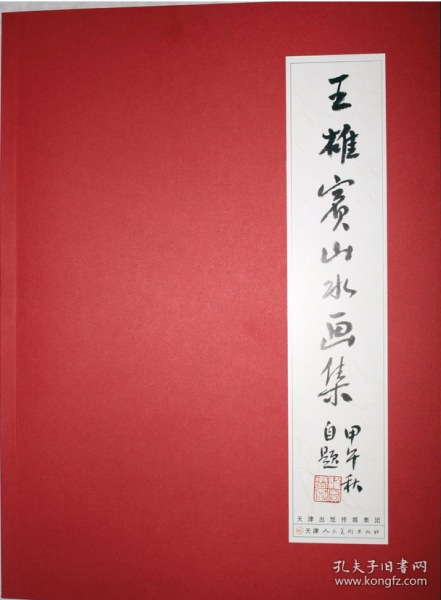 王雄賓山水画集
甲午秋
自題
天津出版传媒集团
天津人民美术出版社
孔夫子旧书网
www.kongfz.com